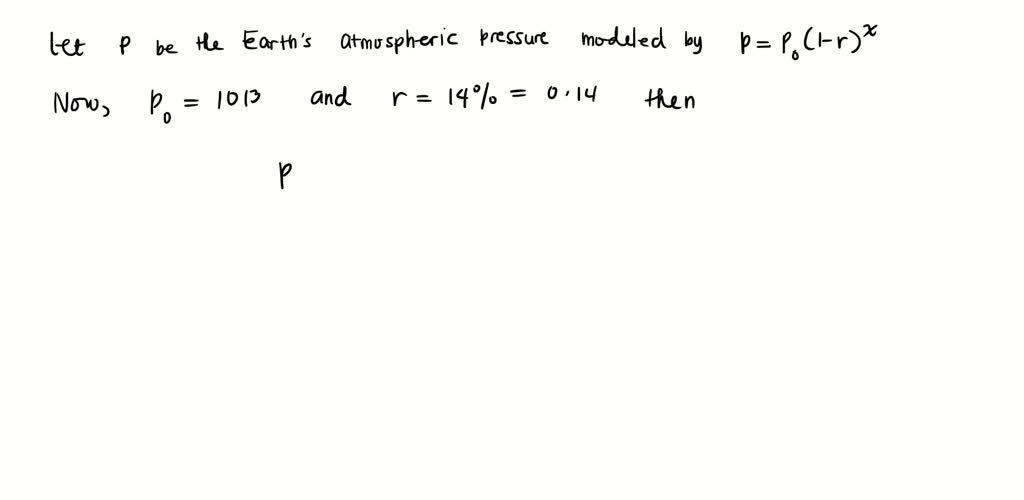 Let P be the Earth's atmospheric pressure modeled by P = P₀(1-r)ˣ
Now, P₀ = 1013 and r = 14% = 0.14 then
P